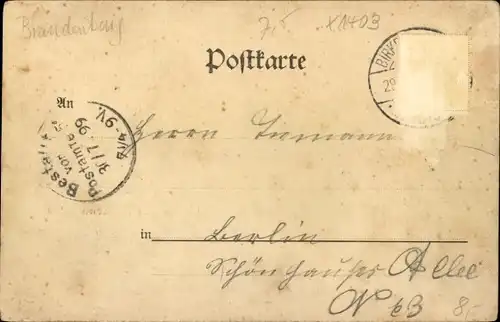 Brandenburg
7,5
X1403
Postkarte
BIRK
29
9
An
Bestellt
vom
Postamte 54
31/7 99
9¼-V.
Herrn Tiemann
in Berlin
Schönhauser Allee
N 63
8,-